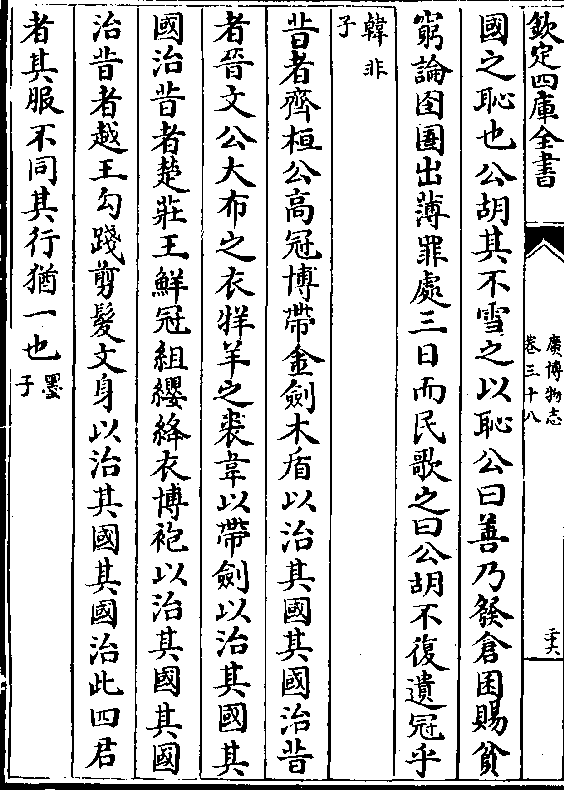 欽定四庫全書
廣博物志
卷三十八
二十六
國之恥也公胡其不雪之以恥公曰善乃發倉囷賜貧
窮論囹圄出薄罪處三日而民歌之曰公胡不復遺冠乎
韓非
子
昔者齊桓公高冠博帶金劍木盾以治其國其國治昔
者晉文公大布之衣牂羊之裘韋以帶劍以治其國其
國治昔者楚莊王鮮冠組纓絳衣博袍以治其國其國
治昔者越王勾踐剪髮文身以治其國其國治此四君
者其服不同其行猶一也
墨
子